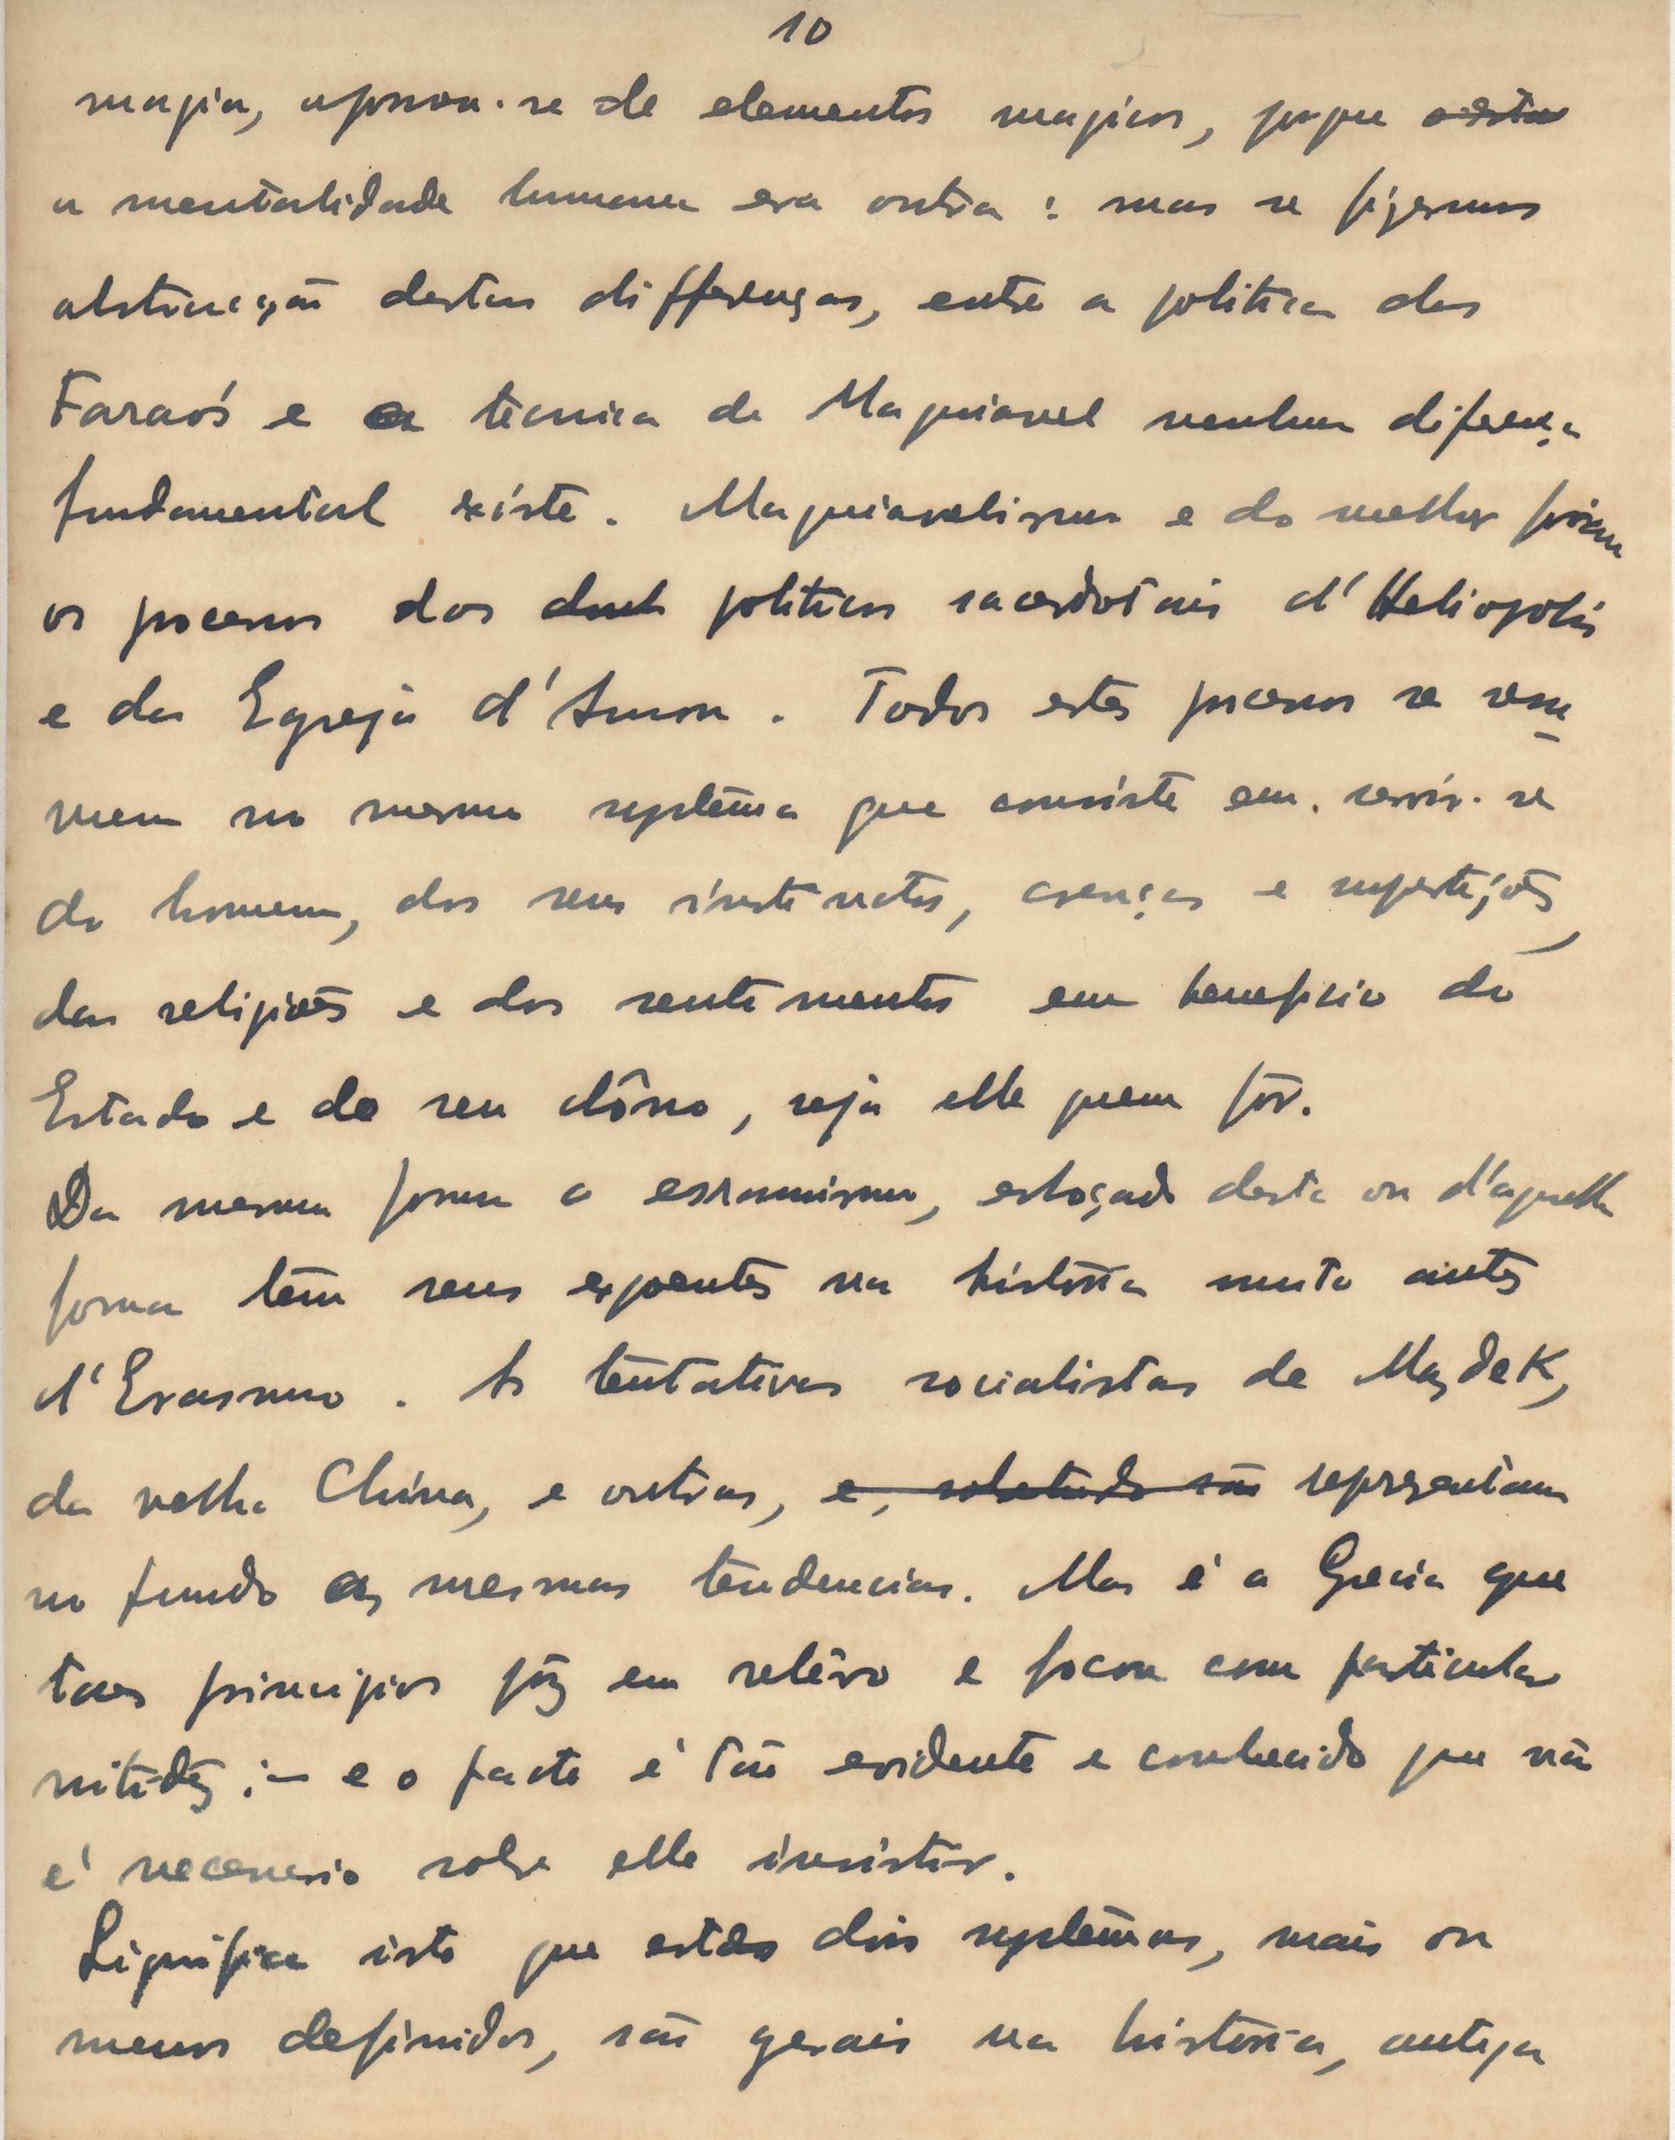 10
magia, apossa-se de elementos magicos, porque
a mentalidade humana era outra: mas se fizermos
abstracção destas differenças, entre a politica dos
Faraós e a técnica de Maquiavel nenhuma diferença
fundamental existe. Maquiavelismo e do melhor fôram
os processos dos politicos sacerdotais d'Heliopolis
e da Egreja d'Amon. Todos estes processos se resu-
mem no mesmo systêma que consiste em servir-se
do homem, dos seus instinctos, crenças e superstições,
das religiões e dos sentimentos em beneficio do
Estado e do seu dôno, seja elle quem fôr.
Da mesma forma o esramismo, esboçado desta ou d'aquella
forma têm seus expoentes na história muito antes
d'Erasmo. As tentativas socialistas de Mazdek,
da velha China, e outras, e, sobretudo são representam
no fundo as mesmas tendencias. Mas é a Grecia que
taes principios põz em relêvo e focou com particular
nitidêz; — e o facto é tão evidente e conhecido que não
é necessario sobre elle insistir.
Significa isto que estes dois systêmas, mais ou
menos definidos, são gerais na história, antiga